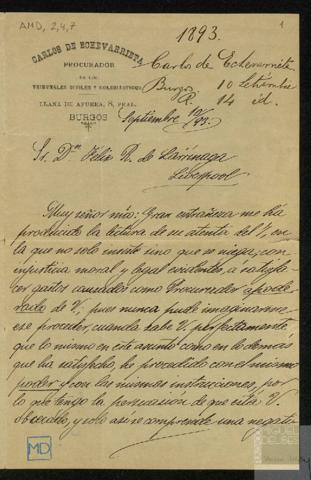 AMD, 2,4,7
1893.
1
CARLOS DE ECHEVARRIETA
PROCURADOR
DE LOS
TRIBUNALES CIVILES Y ECLESIÁSTICOS
LLANA DE AFUERA, 8, PRAL.
BURGOS
Carlos de Echevarrieta
Burgos 10 Setiembre
R. 14 id.
Septiembre 10/93.
Sr. Dn. Félix R. de Lárinaga
Liverpool
Muy señor mío: Gran extrañeza me ha
producido la lectura de su atenta del 7, en
la que no solo insiste sino que se niega, con
injusticia moral y legal evidente, a satisfa-
cer gastos causados como Procurador apode-
rado de V, pues nunca pude imaginarme
ese proceder, cuando sabe V. perfectamente,
que lo mismo en este asunto como en lo demas
que ha satisfecho, he procedido con el mismo
poder y con las mismas instrucciones, por
lo que tengo la persuasion de que está V.
y solo así se comprende una negati-
MD
MIGUEL
DELIBES